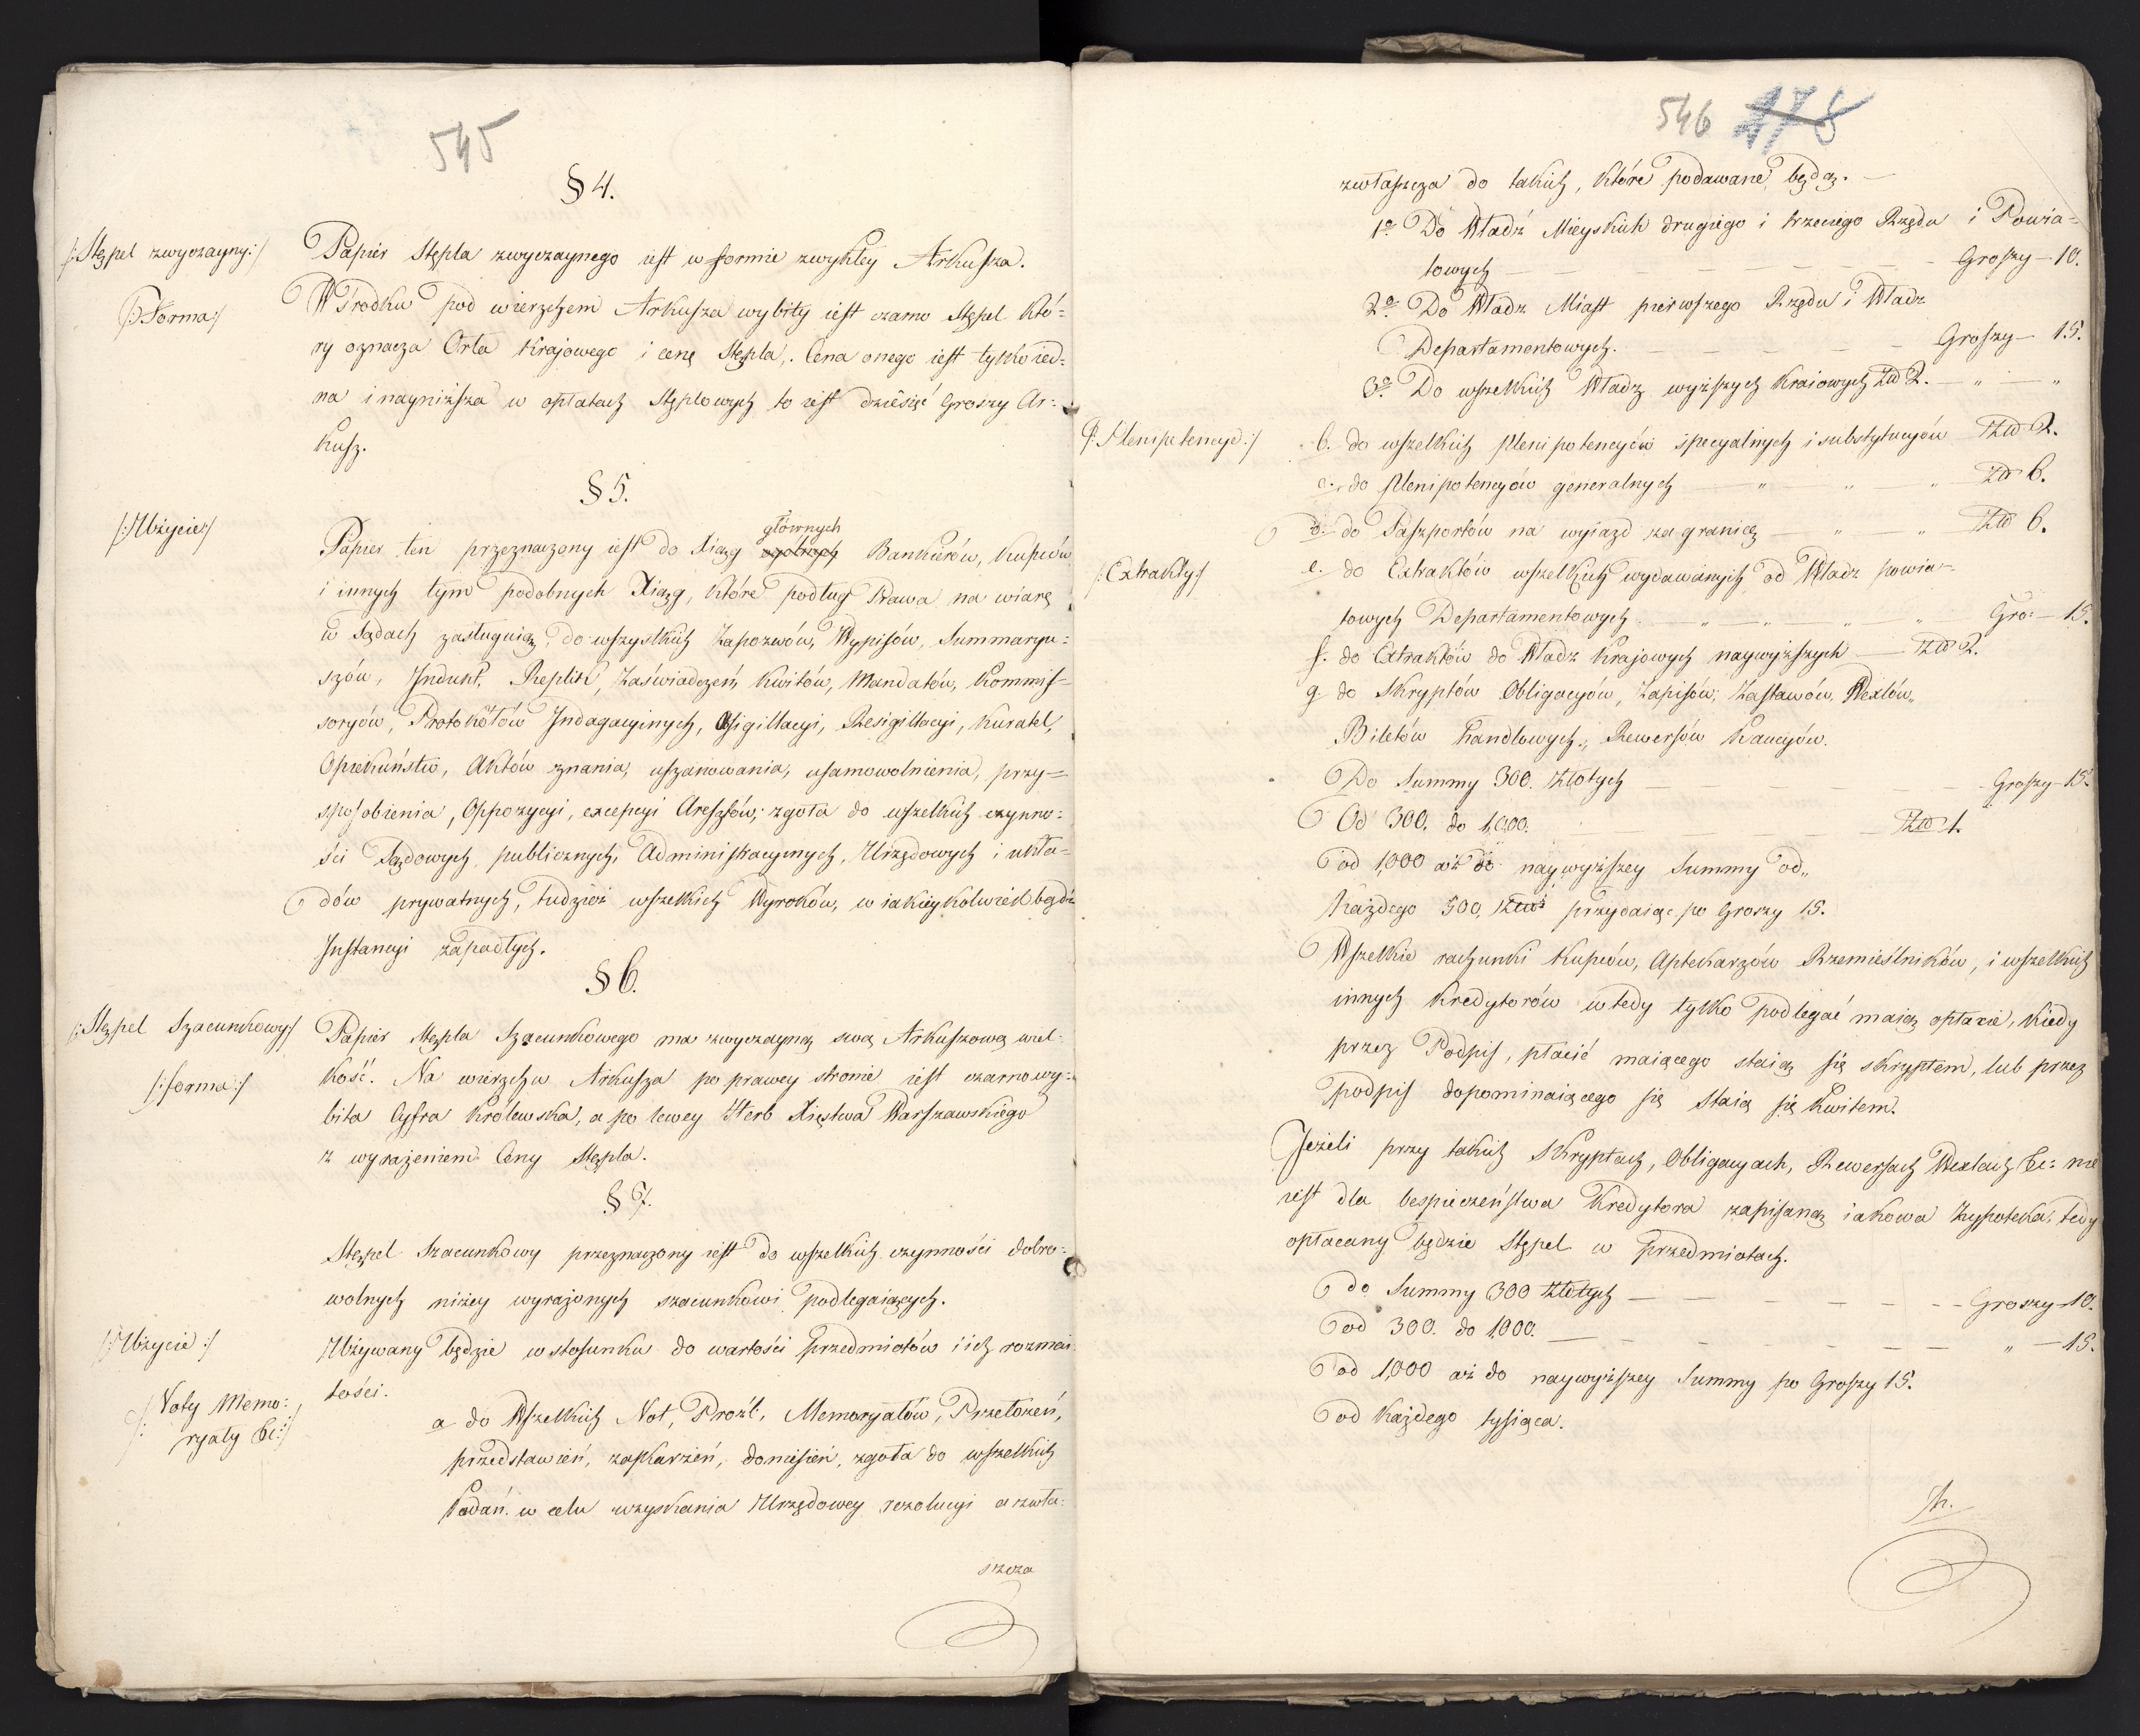 545
§ 4.
/:Stępel zwyczayny:/
Papier Stępla zwyczaynego iest w formie zwykłey Arkusza.
/:Forma:/
W Środku pod wierzchem Arkusza wybity iest czarno Stępel Któ=
ry oznacza Orła Krajowego i cenę Stępla. Cena onego iest tylko ied=
na i nayniższa w opłatach Stęplowych to iest dziesięć Groszy Ar=
kusz.
§ 5.
/:Użycie:/
głównych
Papier ten przeznaczony iest do Xiąg Bankierów, Kupców
i innych tym podobnych Xiąg, które podług Prawa na wiarę
w Sądach zasługuią, do wszystkich Zapozwów, Wypisów, Summaryu=
szów, Indukt, Replik, Zaświadczeń, Kwitów, Mandatów, Kommis=
soryów, Protokółów Indagacyinych, Obsigillacyi, Resigillacyi, Kuratel,
Opiekuństw, Aktów znania, uszanowania, usamowolnienia, przy=
sposobienia, Oppozycyi, excepcyi Aresztów; zgoła do wszelkich czynno=
ści Sądowych, publicznych, Administracyinych, Urzędowych i ukła=
dów prywatnych, tudzież wszelkich Wyroków, w iakieykolwiek bądź
Instancyi zapadłych.
§ 6.
/:Stępel Szacunkowy/
Papier Stępla Szacunkowego ma zwyczayną swą Arkuszową wiel=
/:forma:/
kość. Na wierzchu Arkusza po prawey stronie iest czarno wy=
bita Cyfra Królewska, a po lewey Herb Xięstwa Warszawskiego
z wyrażeniem Ceny Stępla.
§ 7.
Stępel Szacunkowy przeznaczony iest do wszelkich czynności dobro=
wolnych niżey wyrażonych szacunkowi podlegaiących.
/:Użycie:/
Używany będzie w stosunku do wartości przedmiotów i ich rozmai
tości.
/: Noty Memo=
ryały &c:/
a do Wszelkich Not, Proźb, Memoryałów, Przełożeń,
przedstawień, zaskarżeń, doniesień, zgoła do wszelkich
Podań w celu uzyskania Urzędowey rezolucyi a zwła=
szcza
546 178
zwłaszcza do takich, które podawane będą. —
1o Do Władz Mieyskich drugiego i trzeciego Rzędu i Powia=
towych — — — — — — Groszy — 10.
2o Do Władz Miast pierwszego Rzędu i Władz
Departamentowych. — — — — — Groszy — 15.
3o Do wszelkich Władz wyższych Kraiowych Złł 2. — „ — „
/:Plenipotencye:/
b. do wszelkich Plenipotencyów specyalnych i substytucyów Złł 2.
c. do Plenipotencyów generalnych — „ „ „ Złł 6.
d. do Paszportów na wyjazd za granicę — „ — „ Złł 6.
/:Extrakty:/
e. do Extraktów wszelkich wydawanych od Władz powia=
towych Departamentowych — „ — „ „ — „ Gro: — 15.
f. do Extraktów do Władz Krajowych naywyższych — Złł 2.
g. do Skryptów Obligacyów, Zapisów, Zastawów, Wexlów,
Biletów handlowych, Rewersów Kaucyów.
Do Summy 300. Złotych — — — — — Groszy — 15.
Od 300. do 1,000. — — Złł 1.
od 1,000 aż do naywyższey Summy od„
Każdego 500, Złłł przydaiąc po Groszy 15.
Wszelkie rachunki Kupców, Aptekarzów Rzemieślników, i wszelkich
innych Kredytorów wtedy tylko podlegać maią opłacie, kiedy
przez Podpis, płacić maiącego staią się skryptem, lub przez
podpis dopominaiącego się staią się Kwitem.
Jeżeli przy takich Skryptach, Obligacyach, Rewersach Wexlach &c: nie
iest dla bespieczeństwa Kredytora zapisaną iakowa Hypoteka, tedy
opłacany będzie Stępel w przedmiotach.
do Summy 300 Złłtych — — — — — Groszy — 10.
od 300. do 1000. — — — — — „ — 15.
od 1,000 aż do naywyższey Summy po Groszy 15.
od Każdego tysiąca.